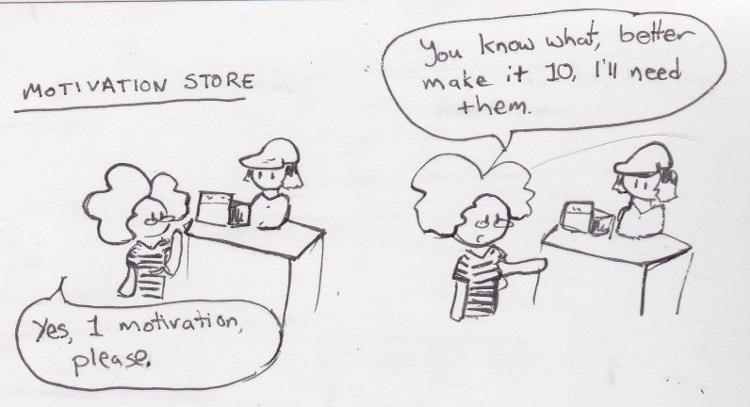 MOTIVATION STORE
Yes, 1 motivation,
please.
You know what, better
make it 10, I'll need
them.